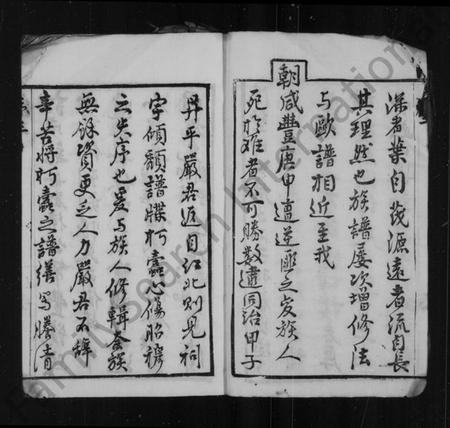 深者葉自茂源遠者流自長
其理然也族譜屢次增修法
與歐譜相近至我
朝咸豐庚申遭逆匪之變族人
死於難者不可勝數逮同治甲子
昇平嚴君返自江北則見祠
宇傾頹譜牒朽蠹心傷昭穆
之失序也爰与族人修輯合族
無餘資更乏人力嚴君不辞
辛苦將朽蠹之譜繕写謄清
FamilySearch International